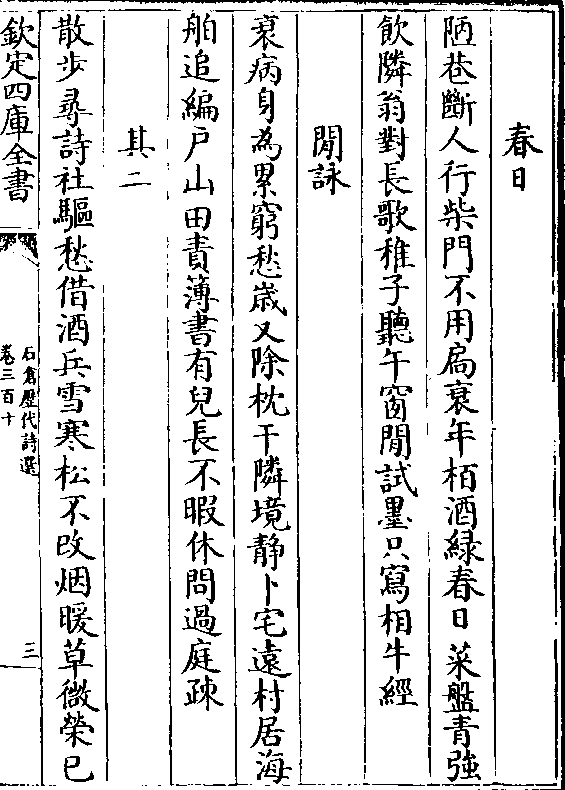 春日
陋巷斷人行柴門不用扃衰年栢酒緑春日菜盤青強
飲隣翁對長歌稚子聽午窗閒試墨只寫相牛經
閒詠
衰病身為累窮愁嵗又除枕干隣境静卜宅遠村居海
舶追編戸山田責薄書有兒長不暇休問過庭疎
其二
散步尋詩社驅愁借酒兵雪寒松不改烟暖草微榮已
欽定四庫全書
石倉歴代詩選
卷三百十
三